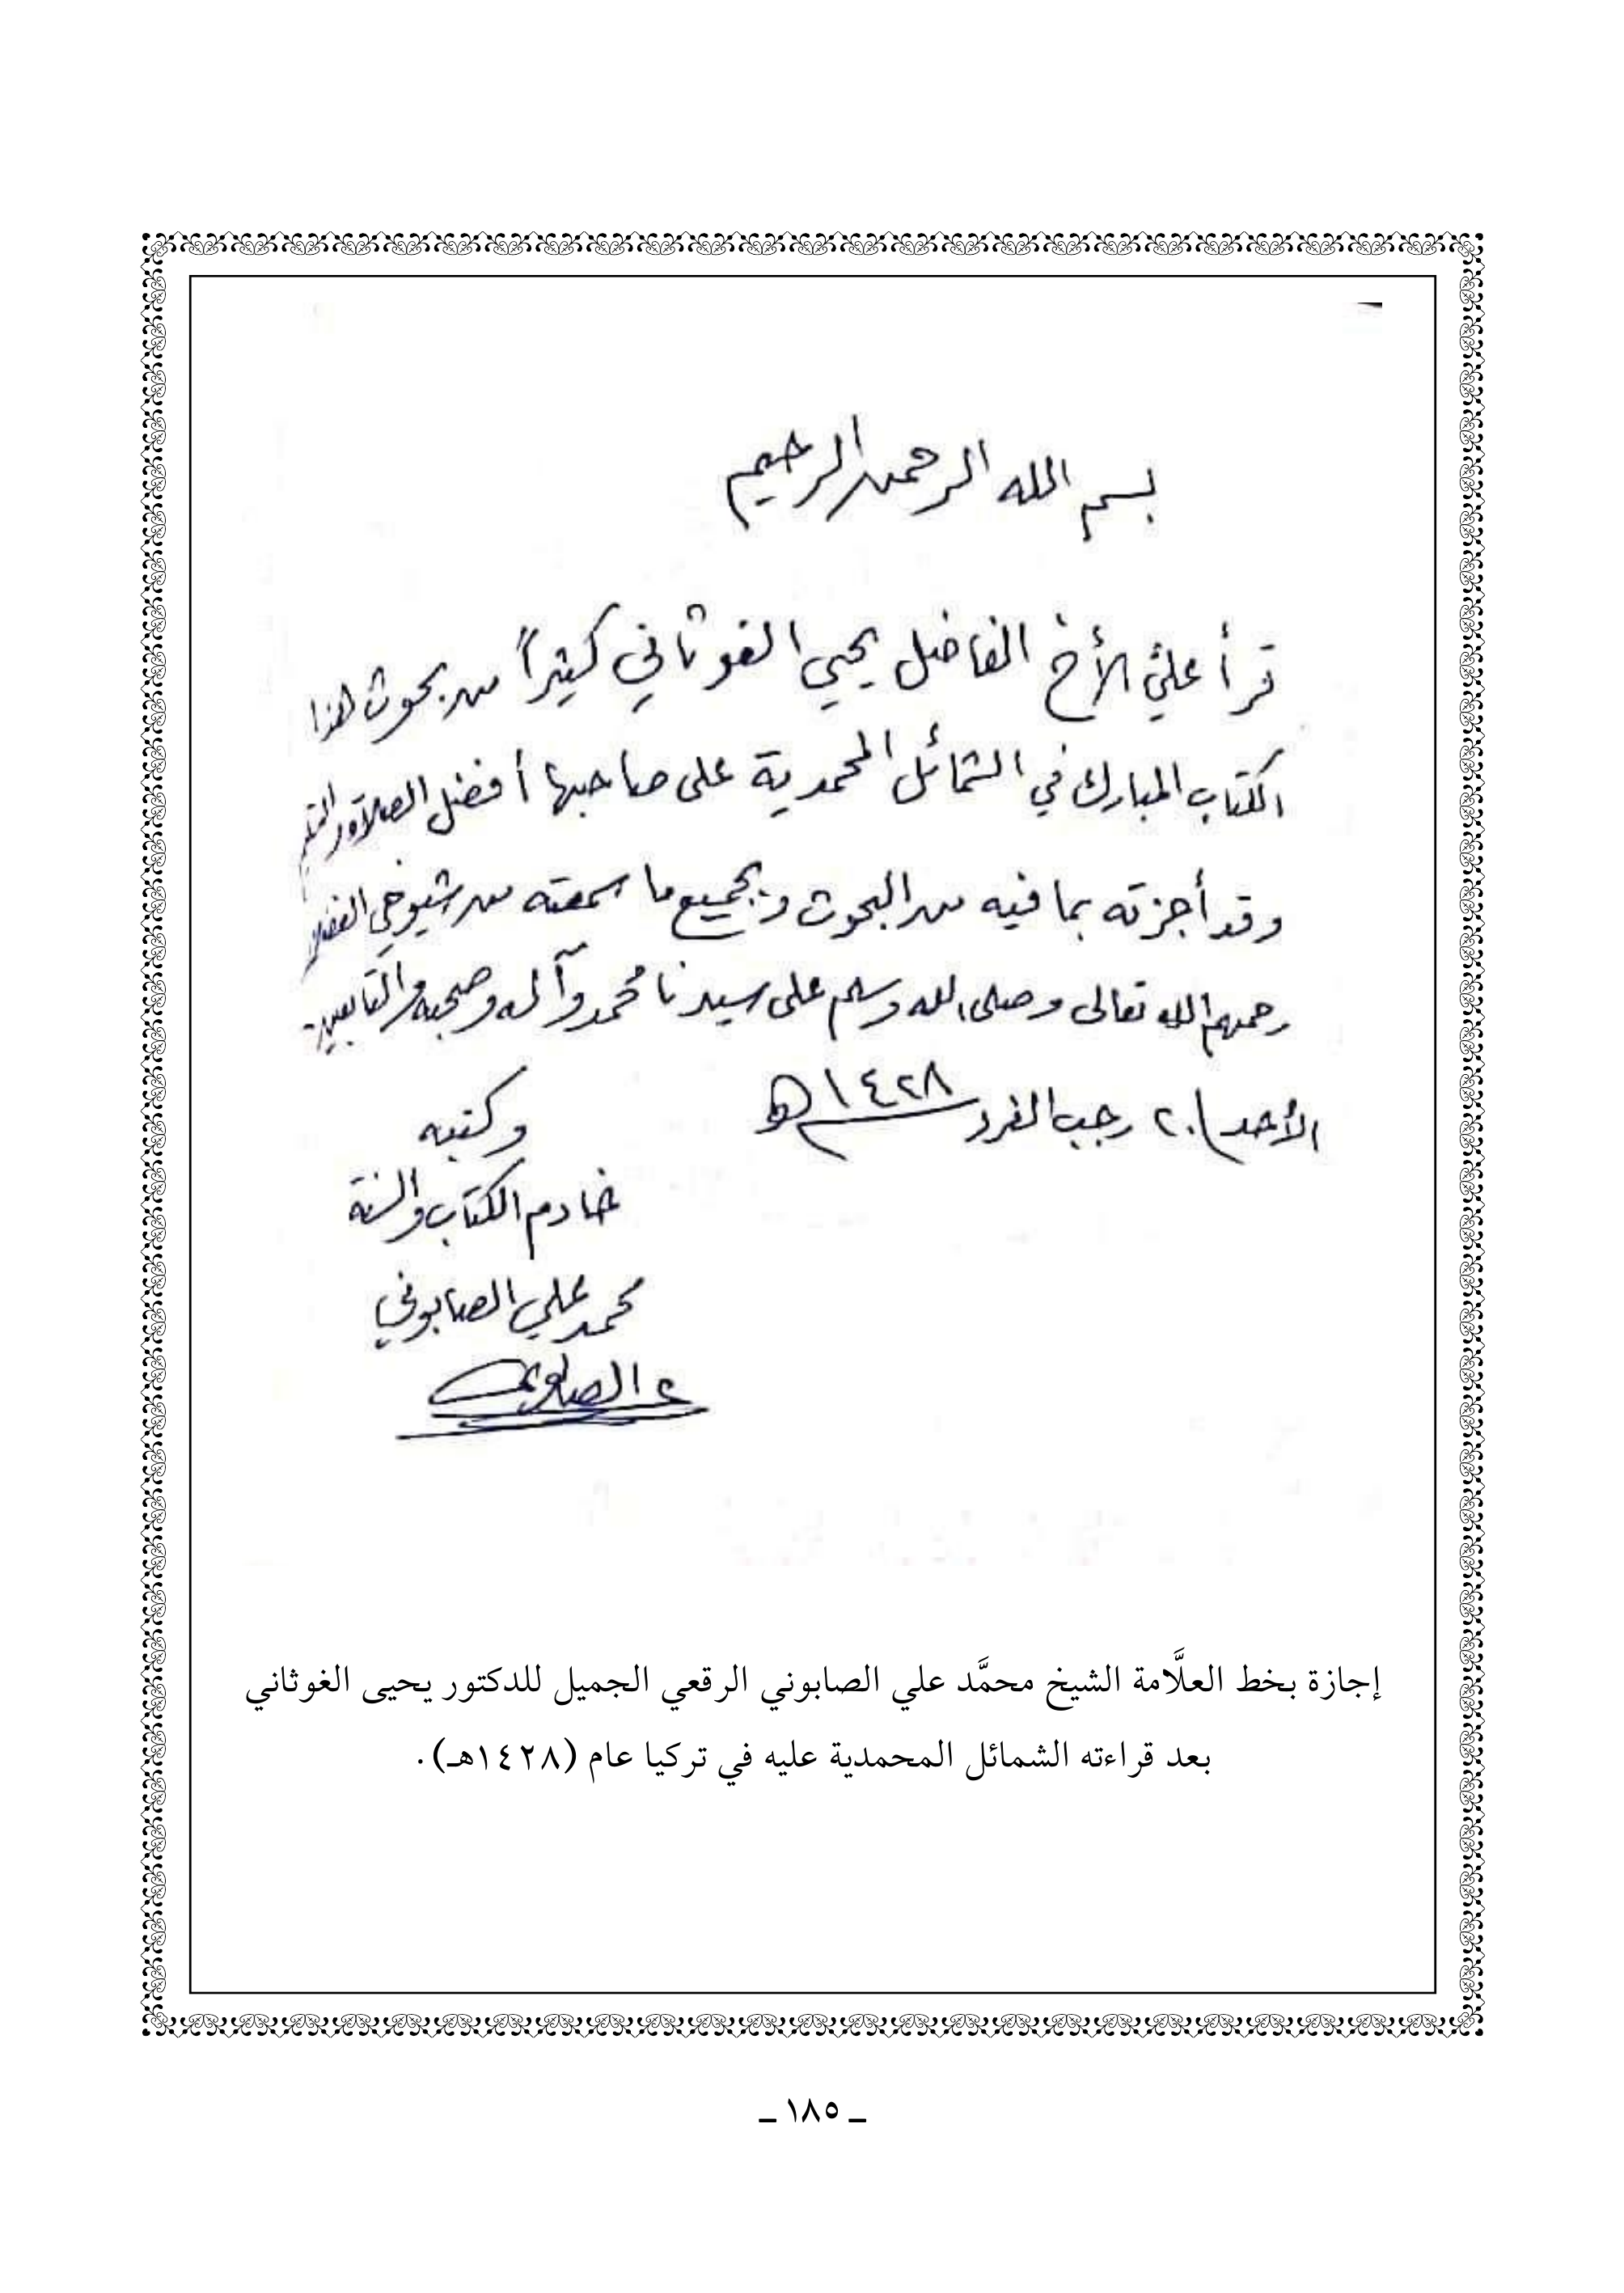 بسم الله الرحمن الرحيم
قرأ عليَّ الأخ الفاضل يحيى الغوثاني كثيراً من بحوث هذا
الكتاب المبارك في الشمائل المحمدية على صاحبها أفضل الصلاة والتسليم
وقد أجزته بما فيه من البحوث وبجميع ما سمعته من شيوخي الفضلاء
رحمهم الله تعالى وصلى الله وسلم على سيدنا محمد وآله وصحبه والتابعين.
الأحد / ٢٠ رجب الفرد ١٤٢٨هـ
وكتبه
خادم الكتاب والسنة
محمد علي الصابوني
إجازة بخط العلَّامة الشيخ محمَّد علي الصابوني الرقعي الجميل للدكتور يحيى الغوثاني
بعد قراءته الشمائل المحمدية عليه في تركيا عام (١٤٢٨هـ).
ـ ١٨٥ ـ